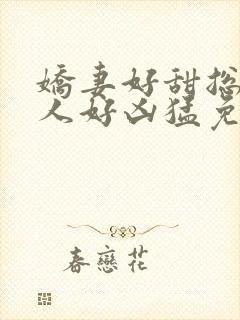 嬌妻好甜捴
人好凶猛免
春戀花